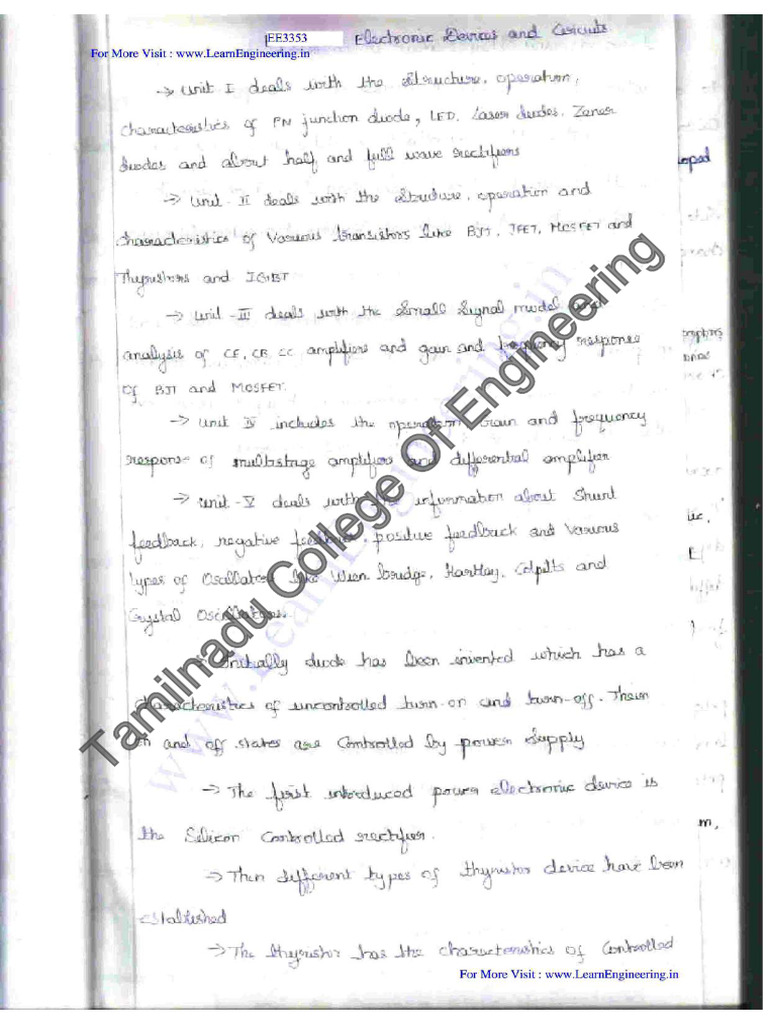 EE3353 Electronic Devices and Circuits
For More Visit : www.LearnEngineering.in
→ Unit I deals with the Structure, operation,
characteristics of PN junction diode, LED, Laser diodes, Zener
diodes and about half and full wave rectifiers
→ Unit - II deals with the structure, operation and
characteristics of Various transistors like BJT, JFET, MOSFET and
Thyristors and IGBT
→ Unit - III deals with the Small Signal model and
analysis of CE, CB CC amplifiers and gain and frequency response
of BJT and MOSFET.
→ Unit IV includes the operation gain and frequency
response of multistage amplifiers and differential amplifier
→ Unit - V deals with the information about Shunt
feedback, negative feedback, positive feedback and Various
types of Oscillators like Wien bridge, Hartley, Colpitts and
Crystal Oscillators.
→ Initially diode has been invented which has a
characteristics of uncontrolled turn-on and turn-off. Their
on and off states are Controlled by power Supply
→ The first introduced power electronic device is
the Silicon Controlled rectifier.
→ Then different types of thyristor device have been
established
→ The thyristor has the characteristics of Controlled
For More Visit : www.LearnEngineering.in
Tamilnadu College Of Engineering
www.LearnEngineering.in